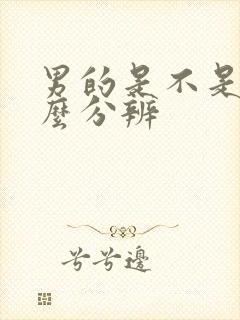 男的是不是
麼分辨
兮兮邊